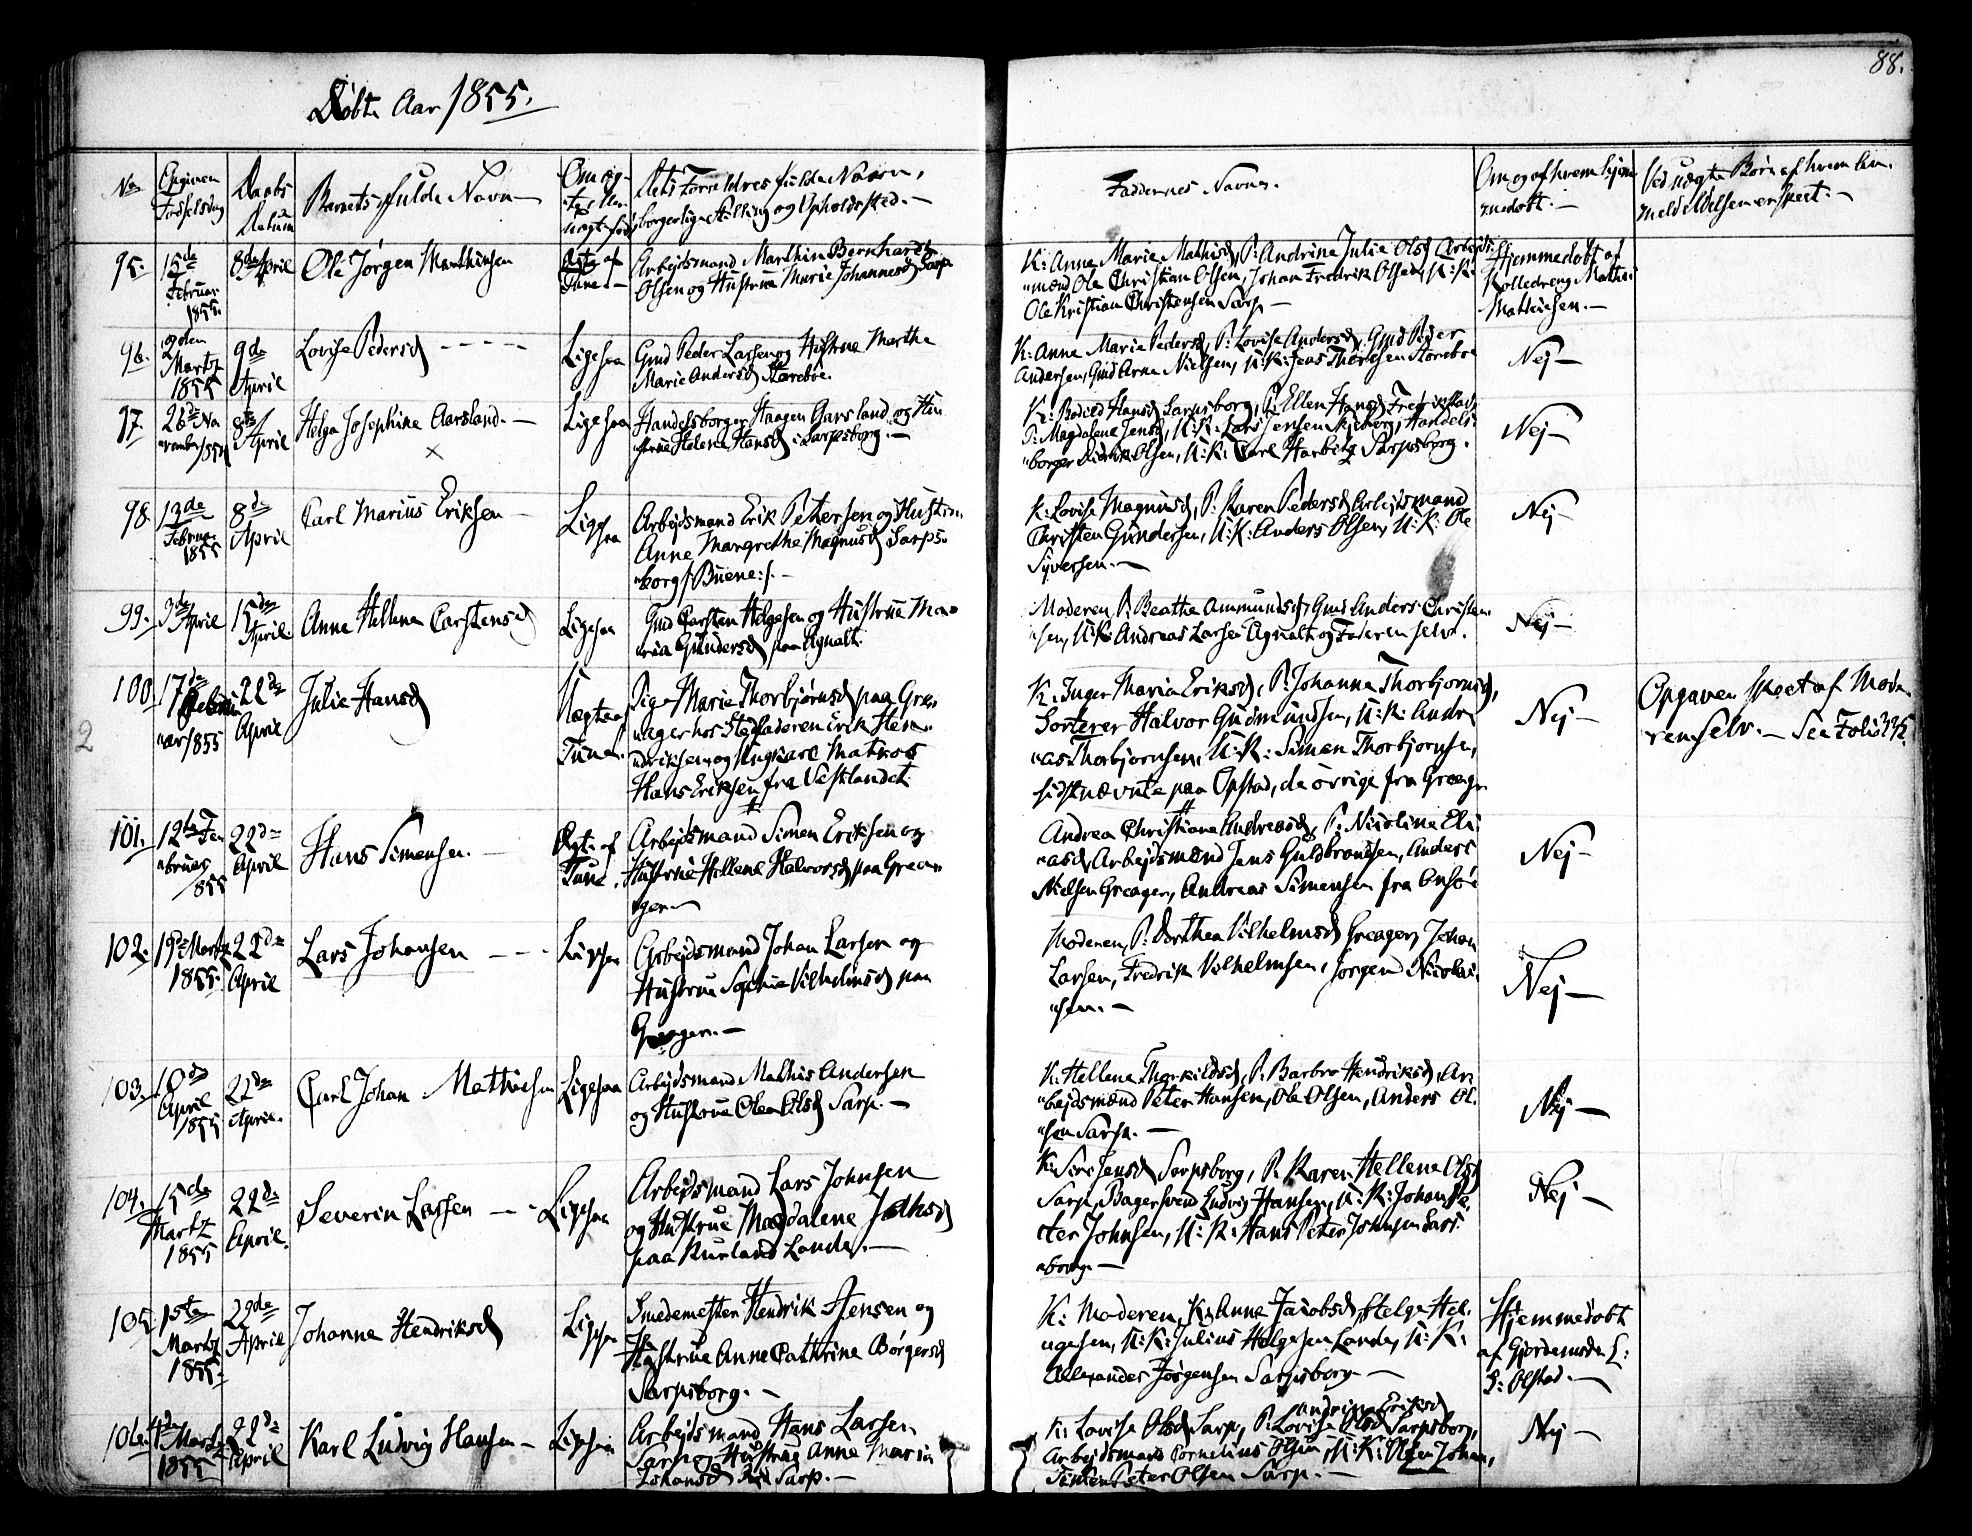 88.
Døbte Aar 1855.
No
Opgiven Fødselsdag
Daabs Datum
Barnets fulde Navn
Om ægte eller uægte født
Dets Forældres fulde Navn,
borgerlige Stilling og Opholdssted.
Faddernes Navne.
Om og af hvem hjemmedøbt.
Ved uægte Børn af hvem Anmeldelsen er skeet.
95.
15de Februar 1855.
8de April
Ole Jørgen Mathisen
Ægte af Tune.
Arbejdsmand Mathin Bernhard
Olsen og Hustrue Marie Johannesd Sarp
K: Anne Marie Mathisd, P: Andrine Julie Olsd Arbejds-
"mænd Ole Christian Olsen, Johan Fredrik Olsen, U: K:
Ole Kristian Christensen Sarp
Hjemmedøbt af
Mathisen.
96.
Martz 1855
9de April
Lovise Pedersd
Ligesaa
Gmd Peder Larsen og Hustrue Marthe
Marie Andersd Storeboe.
K: Anne Marie Pedersd, P: Lovise Andersd, Gmd Peder
Andersen, Gmd Arne Nielsen, U: K: Jens Thoresen Storeboe
Nej
97.
26de November 1854
8de April
Helga Josephine Aarsland.
Ligesaa
Handelsborger Haagen Garsland og Hu-
strue Helene Hansd i Sarpsborg.
K: Bodild Hansd Sarpsborg, P: Ellen Hansd Fredrikstad
P: Magdalene Jensd, U: K: Lars Jensen Skjeberg, Handels-
"borger Didrik Olsen, U: K: Carl Harbitz Sarpsborg.
Nej
98.
13de Februar 1855
8de April
Carl Marius Eriksen
Ligesaa
Arbejdsmand Erik Petersen og Hustrue
Anne Margrethe Magnusd Sarps-
"borg /: Buene :/.
K: Lovise Magnusd, P: Karen Pedersd Arbejdsmand
Christen Gundersen, U: K: Anders Olsen, U: K: Ole
Syversen.
Nej
99.
3de April
15de April.
Anne Hellene Carstensd
Ligesaa
Gmd Carsten Helgesen og Hustrue Ma-
"ria Gundersd paa Agnalt.
Moderen, P: Beatha Ammundsd, Gmd Anders Christen-
"sen, U: K: Andreas Larsen Agnalt og Faderen selv.
Nej
100
17de Februar 1855
22de April
Julie Hansd
Uægte af Tune.
Pige Marie Thorbjørnsd paa Grea-
"ager hos Stedfaderen Erik Hen-
"driksen og Ungkarl Matros
Hans Eriksen fra Vestlandet
K: Inger Maria Eriksd, P: Johanna Thorbjornsd,
Sorterer Halvor Gudmundsen, U: K: Andre-
"as Thorbjornsen, U: K: Simen Thorbjornsen,
sidstnævnte paa Opstad, de øvrige fra Greager
Nej
Opgaven skeet af Mode-
ren selv. See Folio
2
101.
12te Februar 1855
22de April
Hans Simensen.
Ægte af Tune.
Arbejdsmand Simen Eriksen og
Hustrue Hellene Halvorsd paa Grea-
"ger.
Andrea Christiane Andreasd, P: Nicoline Eli-
"asd, Arbejdsmænd Jens Guldbrandsen, Anders
Nielsen Greager, Andreas Simensen fra Onsøe
Nej
102.
19de Martz 1855.
22de April
Lars Johansen
Ligesaa
Arbejdsmand Johan Larsen og
Hustrue Sophie Vilhelmsd paa
Greager.
Moderen, P: Dorthea Vilhelmsd Greager, Johan
Larsen, Fredrik Vilhelmsen, Jørgen Nicolai-
"sen.
Nej
103.
10de April 1855
22de April.
Carl Johan Mathisen
Ligesaa
Arbejdsmand Mathis Andersen
og Hustrue Olea Olsd Sarp.
K: Hellene Thorkildsd, P: Barbro Hendriksd, Ar-
"bejdsmænd Peter Hansen, Ole Olsen, Anders Ol-
"sen Sarp.
Nej
104.
15de Martz 1855
22de April.
Severin Larsen
Ligesaa
Arbejdsmand Lars Johnsen
og Hustrue Magdalene
paa Kurland Lande.
K: Siri Jensd Sarpsborg, P: Karen Hellene Olsd
Sarp, Bagersvend Ludvig Hansen, U: K: Johan Pe-
ter Johnsen, U: K: Hans Peter Johnsen Sarps-
"borg.
Nej
105.
1ste Martz 1855.
22de April
Johanne Hendriksd
Ligesaa
Smedemester Hendrik Jensen og
Hustrue Anne Cathrine Børgersd
Sarpsborg.
K: Moderen, K: Anne Jacobsd, Helge Hel-
"gesen, U: K: Julius Helgesen Lande, U: K:
Allexander Jørgensen Sarpsborg
Hjemmedøbt
af Gjordemoder L:
S: Olstad.
106.
4de Martz 1855
22de April
Karl Ludvig Hansen
Ligesaa
Arbejdsmand Hans Larsen
Sarp og Hustrue Anne Maria
Johansd Sarp.
Andrine Eriksd
K: Lovise Olsd Sarp, P: Lovise Olsd Sarpsborg,
Arbejdsmand Cornelius Olsen, U: K: Olsen Johan,
Peter Olsen Sarp.
Nej